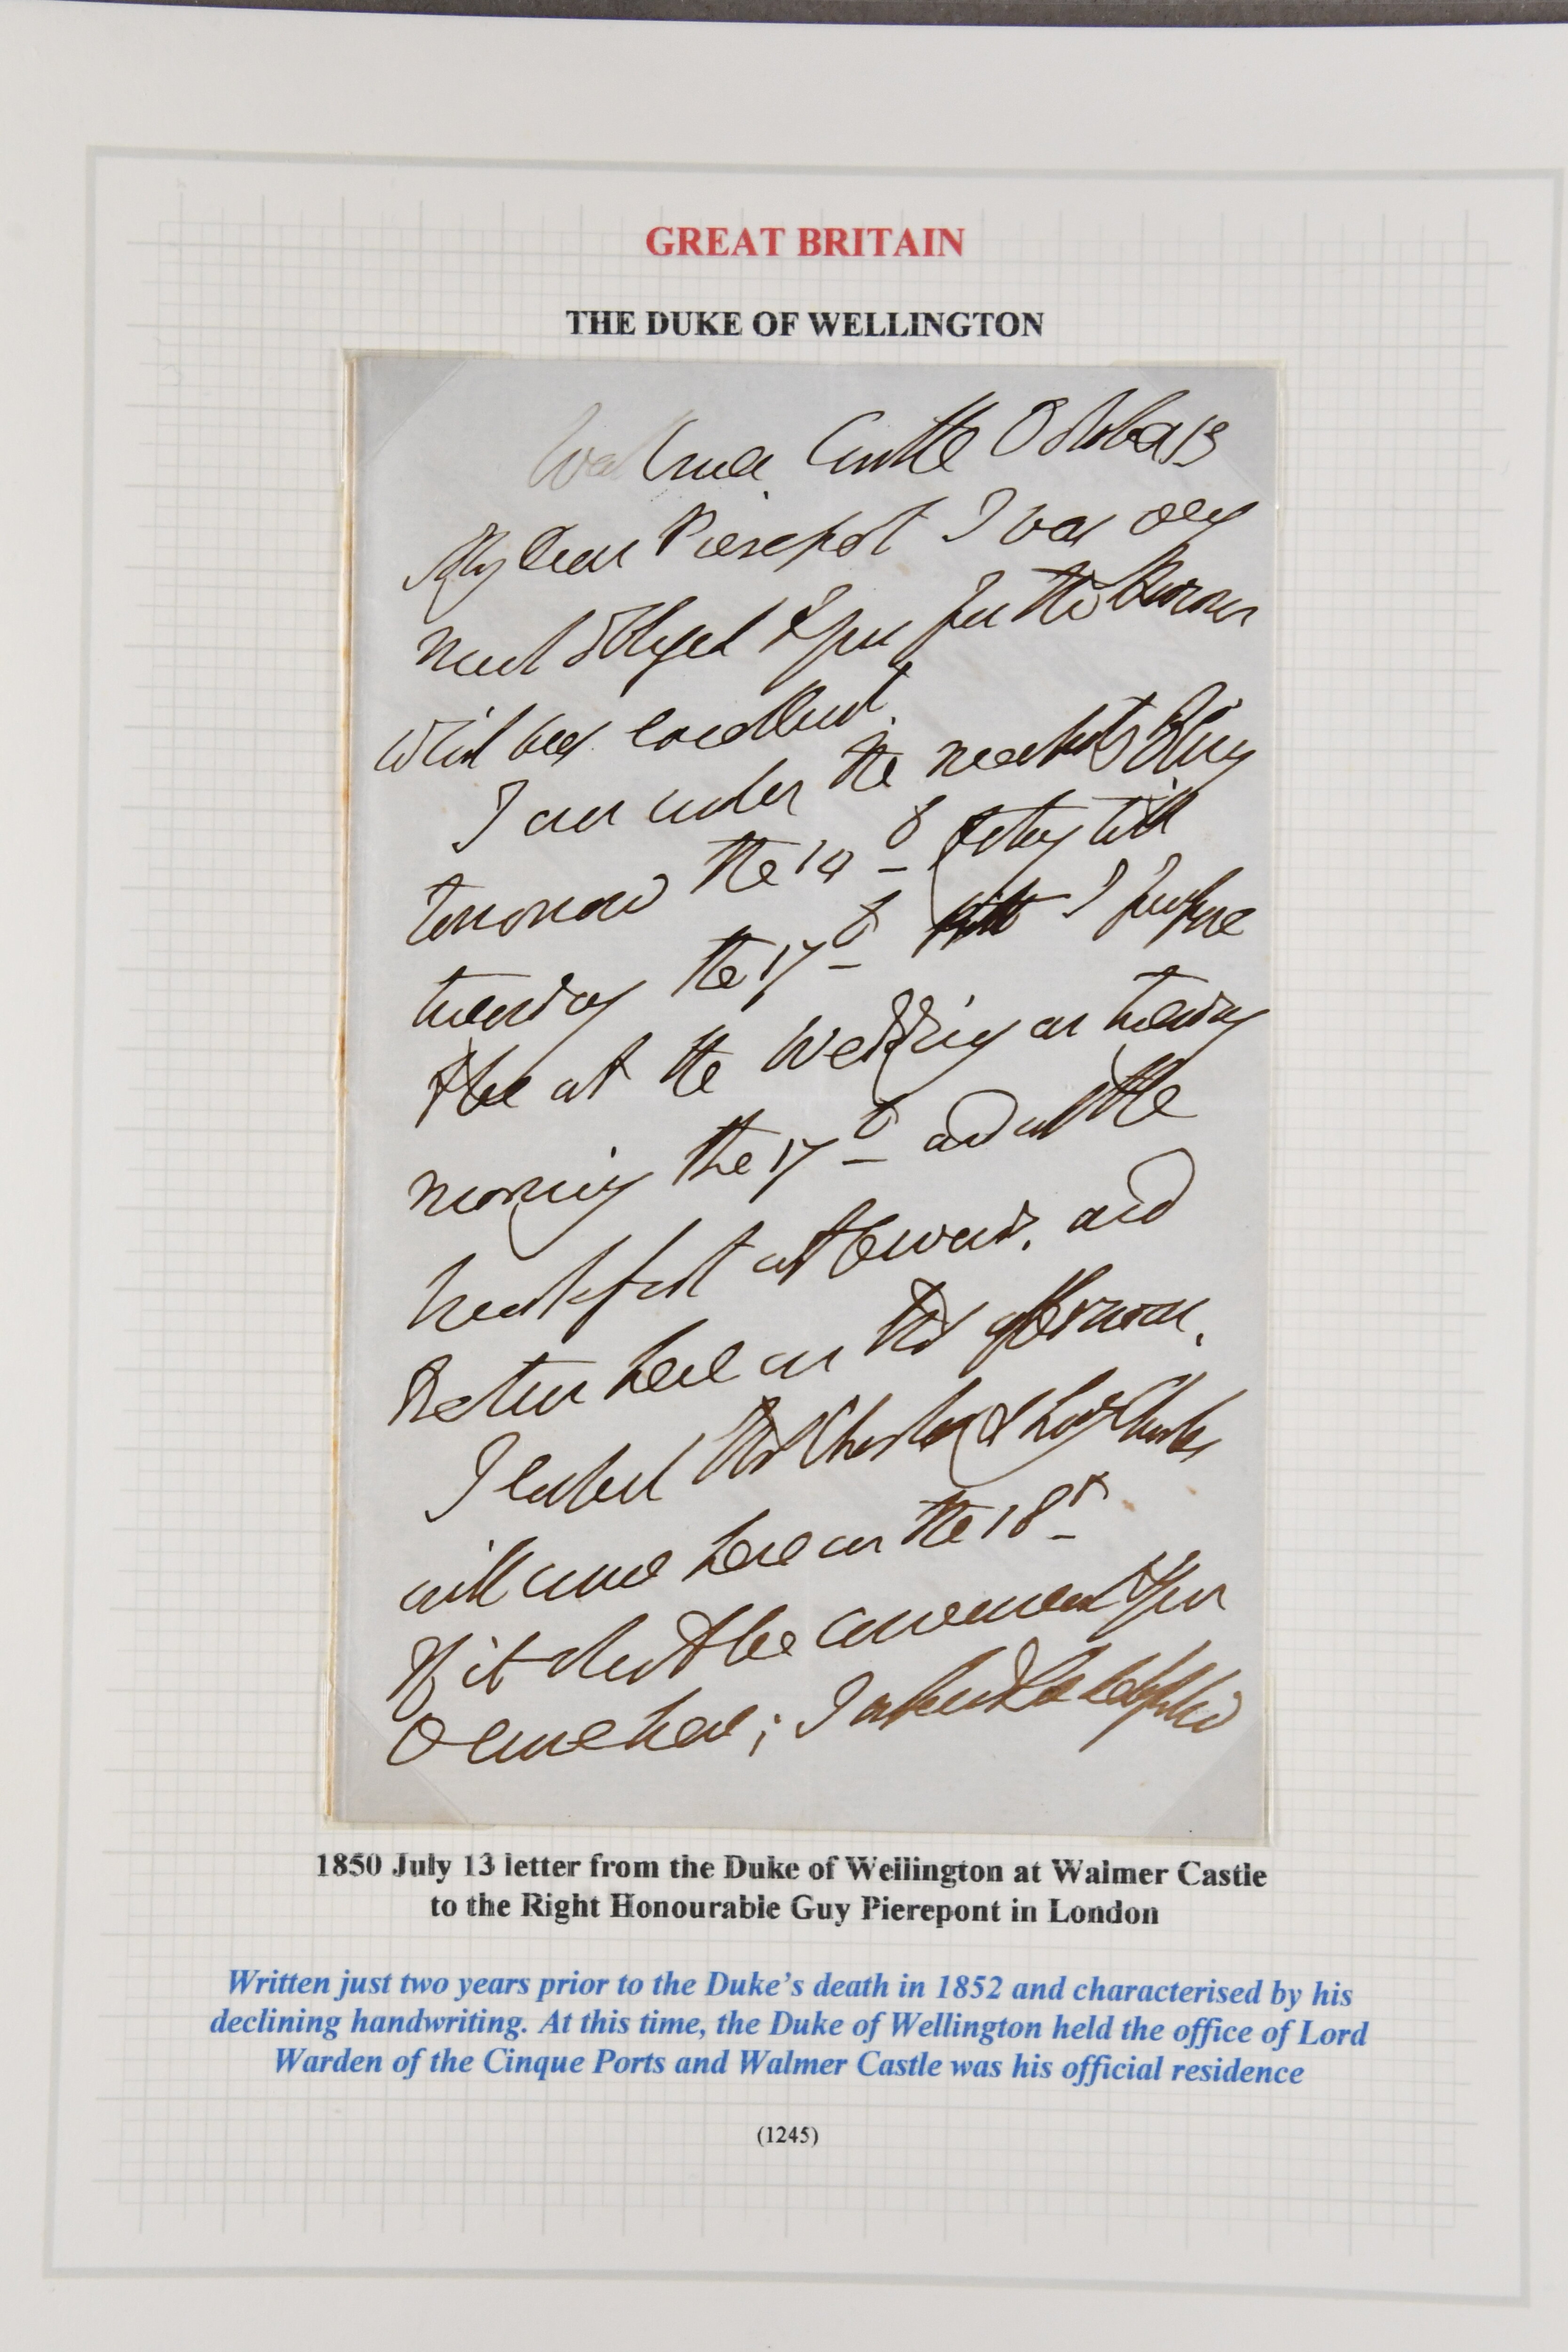 GREAT BRITAIN
THE DUKE OF WELLINGTON
Walmer Castle October 13
My Dear Pierepont I was very
much obliged to you for the
which was excellent.
I am under the necessity of
tomorrow the 14th to stay till
tuesday the 17th I purpose
to be at the Wedding on tuesday
morning the 17th and at the
breakfast afterwards. and
Return here on that afternoon.
I expect that Charles & Lady Charles
will come here on the 18th
If it should be convenient to you
to come here; I should be delighted
1850 July 13 letter from the Duke of Wellington at Walmer Castle
to the Right Honourable Guy Pierepont in London
Written just two years prior to the Duke’s death in 1852 and characterised by his
declining handwriting. At this time, the Duke of Wellington held the office of Lord
Warden of the Cinque Ports and Walmer Castle was his official residence
(1245)